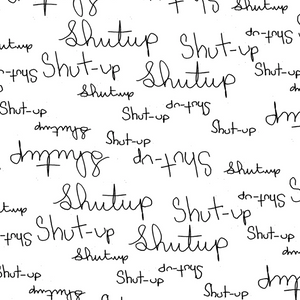 Shutup
Shut-up
Shutup
Shut-up
Shutup
Shut-up
Shut-up
Shutup
Shutup
Shut-up
Shut-up
Shut-up
Shutup
Shut-up
Shutup
Shut-up
Shutup
Shutup
Shut-up
Shutup
Shut-up
Shut-up
Shutup
Shut-up
Shut-up
Shutup
Shut-up
Shutup
Shut-up
Shut-up
Shut-up
Shutup
Shut-up
Shutup